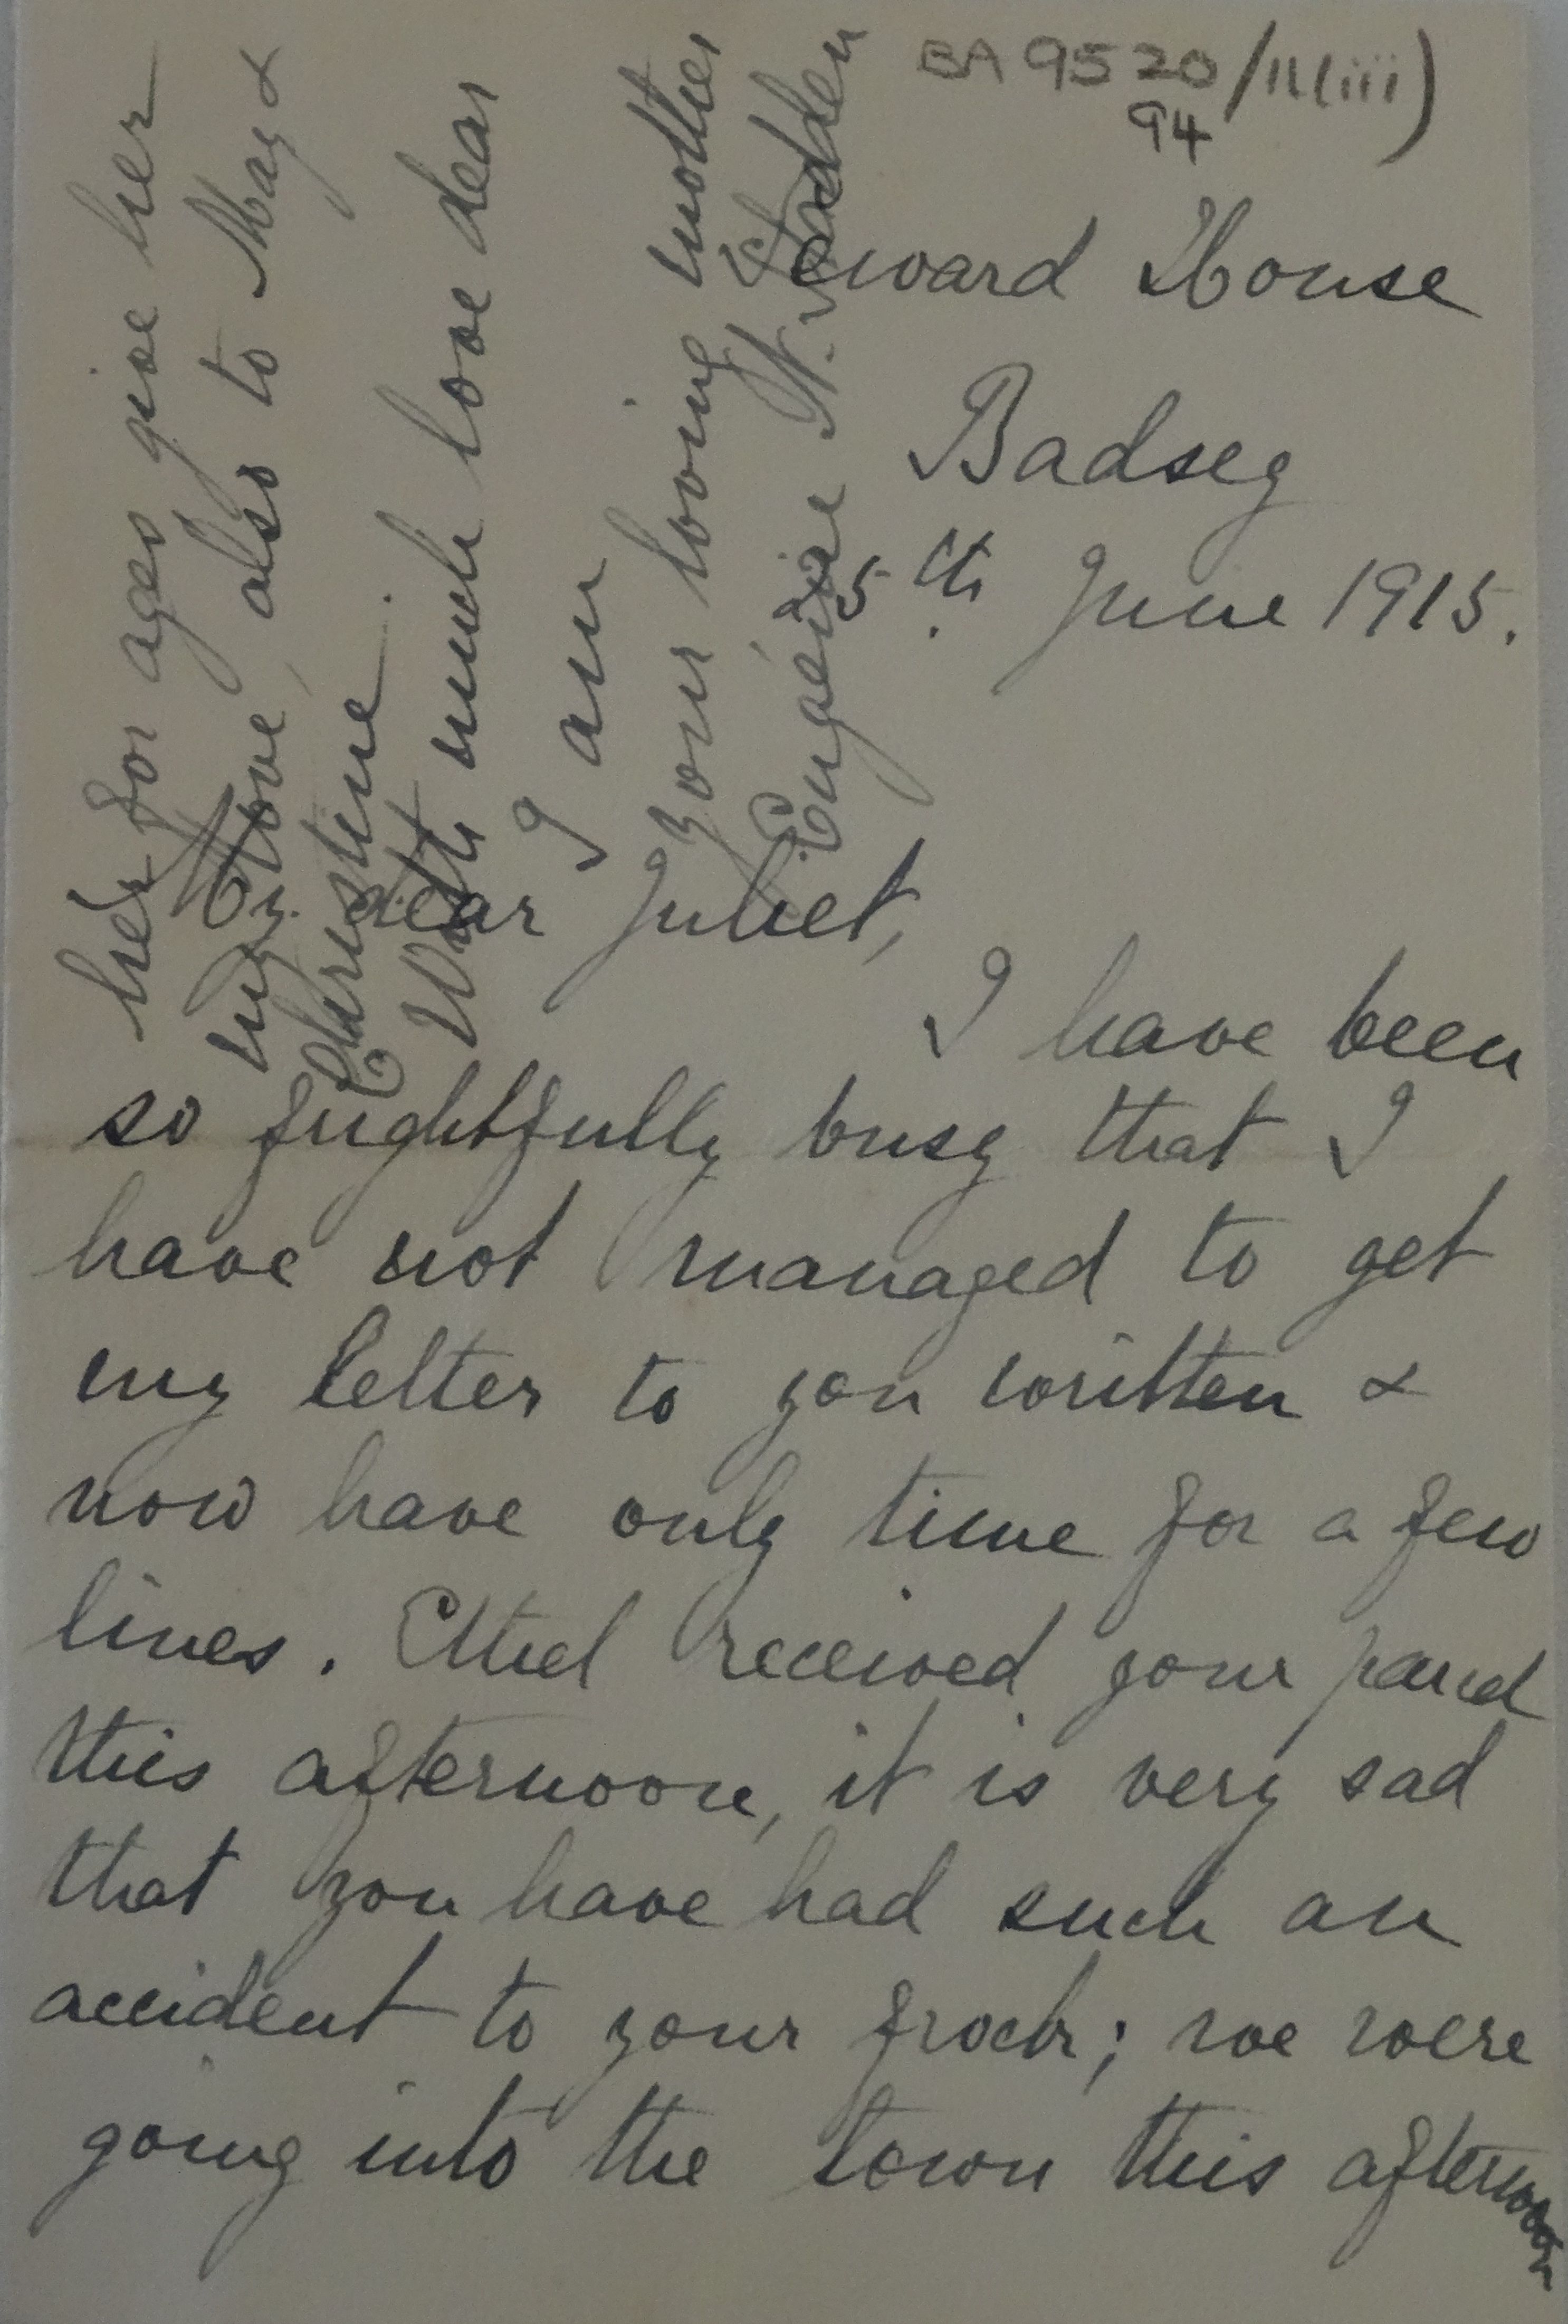 BA 9520/11(iii)
94
Seward House
Badsey
5th June 1915.
My dear Juliet,
I have been
so frightfully busy that I
have not managed to get
my letter to you written &
now have only time for a few
lines. Ethel received your parcel
this afternoon, it is very sad
that you have had such an
accident to your frock; we were
going into the town this afternoon
her for ages give her
my love, also to May &
Christine.
With much love dear
I am
your loving mother
Eugénie N. Sladden